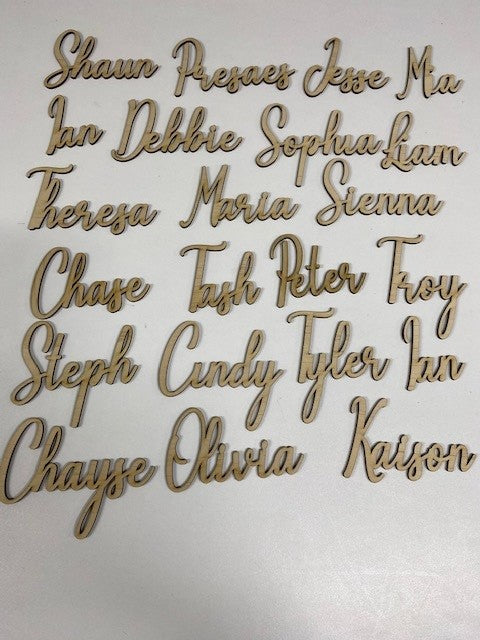 Shaun Presaes Jesse Mia
Ian Debbie Sophia Liam
Theresa Maria Sienna
Chase Tash Peter Troy
Steph Cindy Tyler Ian
Chayse Olivia Kaison